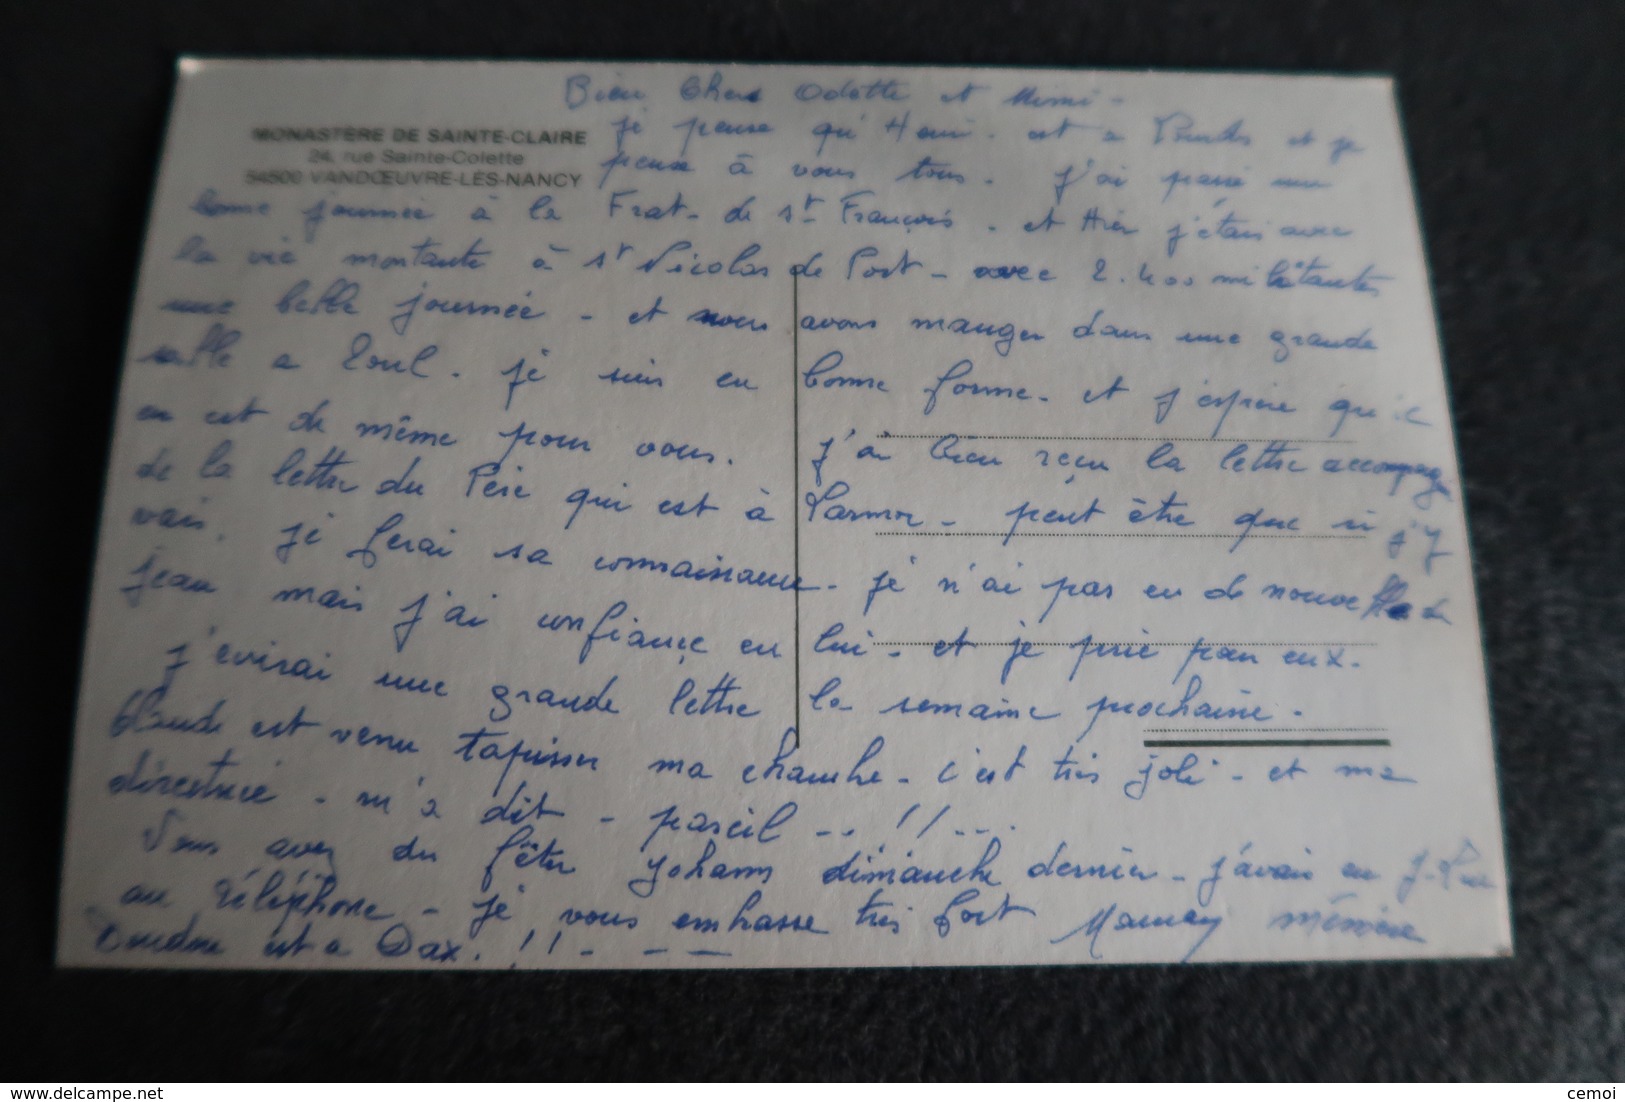 MONASTÈRE DE SAINTE-CLAIRE
24, rue Sainte-Colette
54500 VANDŒUVRE-LES-NANCY
Bien Chers Odette et Mimi -
je pense qu'Henri - est a et je
pense à vous tous - J'ai passé une
bonne journée à la Frat - de St François - et Hier j'étais avec
la vie montante à St Nicolas de Port - avec 2.400 militantes
une belle journée - et nous avons manger dans une grande
salle a Toul - je suis en bonne forme - et j'espère qu'il
en est de même pour vous. j'ai bien reçu la lettre accompag
de la lettre du Père qui est à Larmor - peut être que si j'y
vais, je ferai sa connaissance - je n'ai pas eu de nouvelle de
jean mais j'ai confiance en lui - et je prie pour eux -
j'écrirai une grande lettre la semaine prochaine -
Claude est venu tapisser ma chambre - c'est très joli - et ma
directrice - m'a dit - pareil -- !! ---
Vous avez du fêter Yohann dimanche dernier - j'avais eu J. Luc
au téléphone - je vous embrasse très fort Maman mémère
est a Dax. !! - - -
cemoi